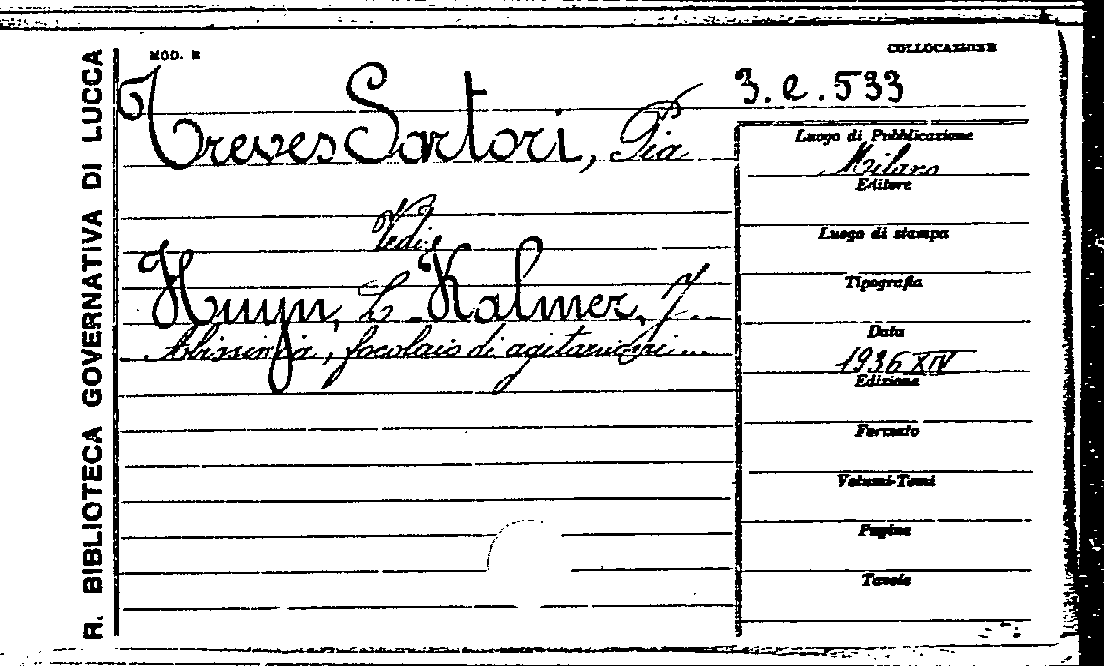 R. BIBLIOTECA GOVERNATIVA DI LUCCA
MOD. R
COLLOCAZIONE
3. e. 533
Treves Sartori, Pia
Vedi
Huyn, L - Kalmer, J.
Abissinia, focolaio di agitazioni...
Luogo di Pubblicazione
Milano
Editore
Luogo di stampa
Tipografia
Data
1936 XIV
Edizione
Formato
Volumi-Tomi
Pagine
Tavole